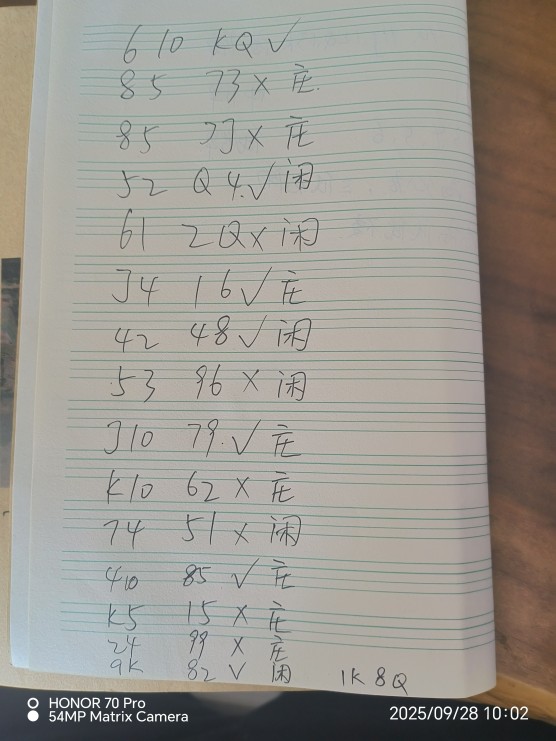 6 10 KQ √
85 73 × 庄.
85 7J × 庄
52 Q4.√ 闲
61 2Q× 闲
J4 16√ 庄
42 48√ 闲
53 96 × 闲
J10 79.√ 庄
K10 62 × 庄
74 51 × 闲
410 85 √ 庄
K5 15 × 庄
24 99 × 庄
9K 82 √ 闲 1K 8Q
HONOR 70 Pro
54MP Matrix Camera
2025/09/28 10:02